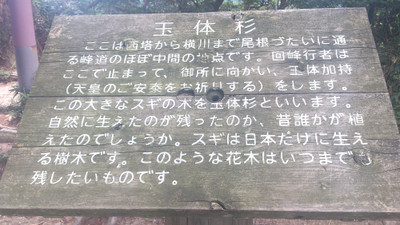 玉体杉
ここは西塔から横川まで尾根づたいに通
る峰道のほぼ中間の地点です。回峰行者は
ここで止まって、御所に向かい、玉体加持
（天皇のご安泰をお祈りする）をします。
この大きなスギの木を玉体杉といいます。
自然に生えたのが残ったのか、昔誰かが植
えたのでしょうか。スギは日本だけに生え
る樹木です。このような花木はいつまでも
残したいものです。